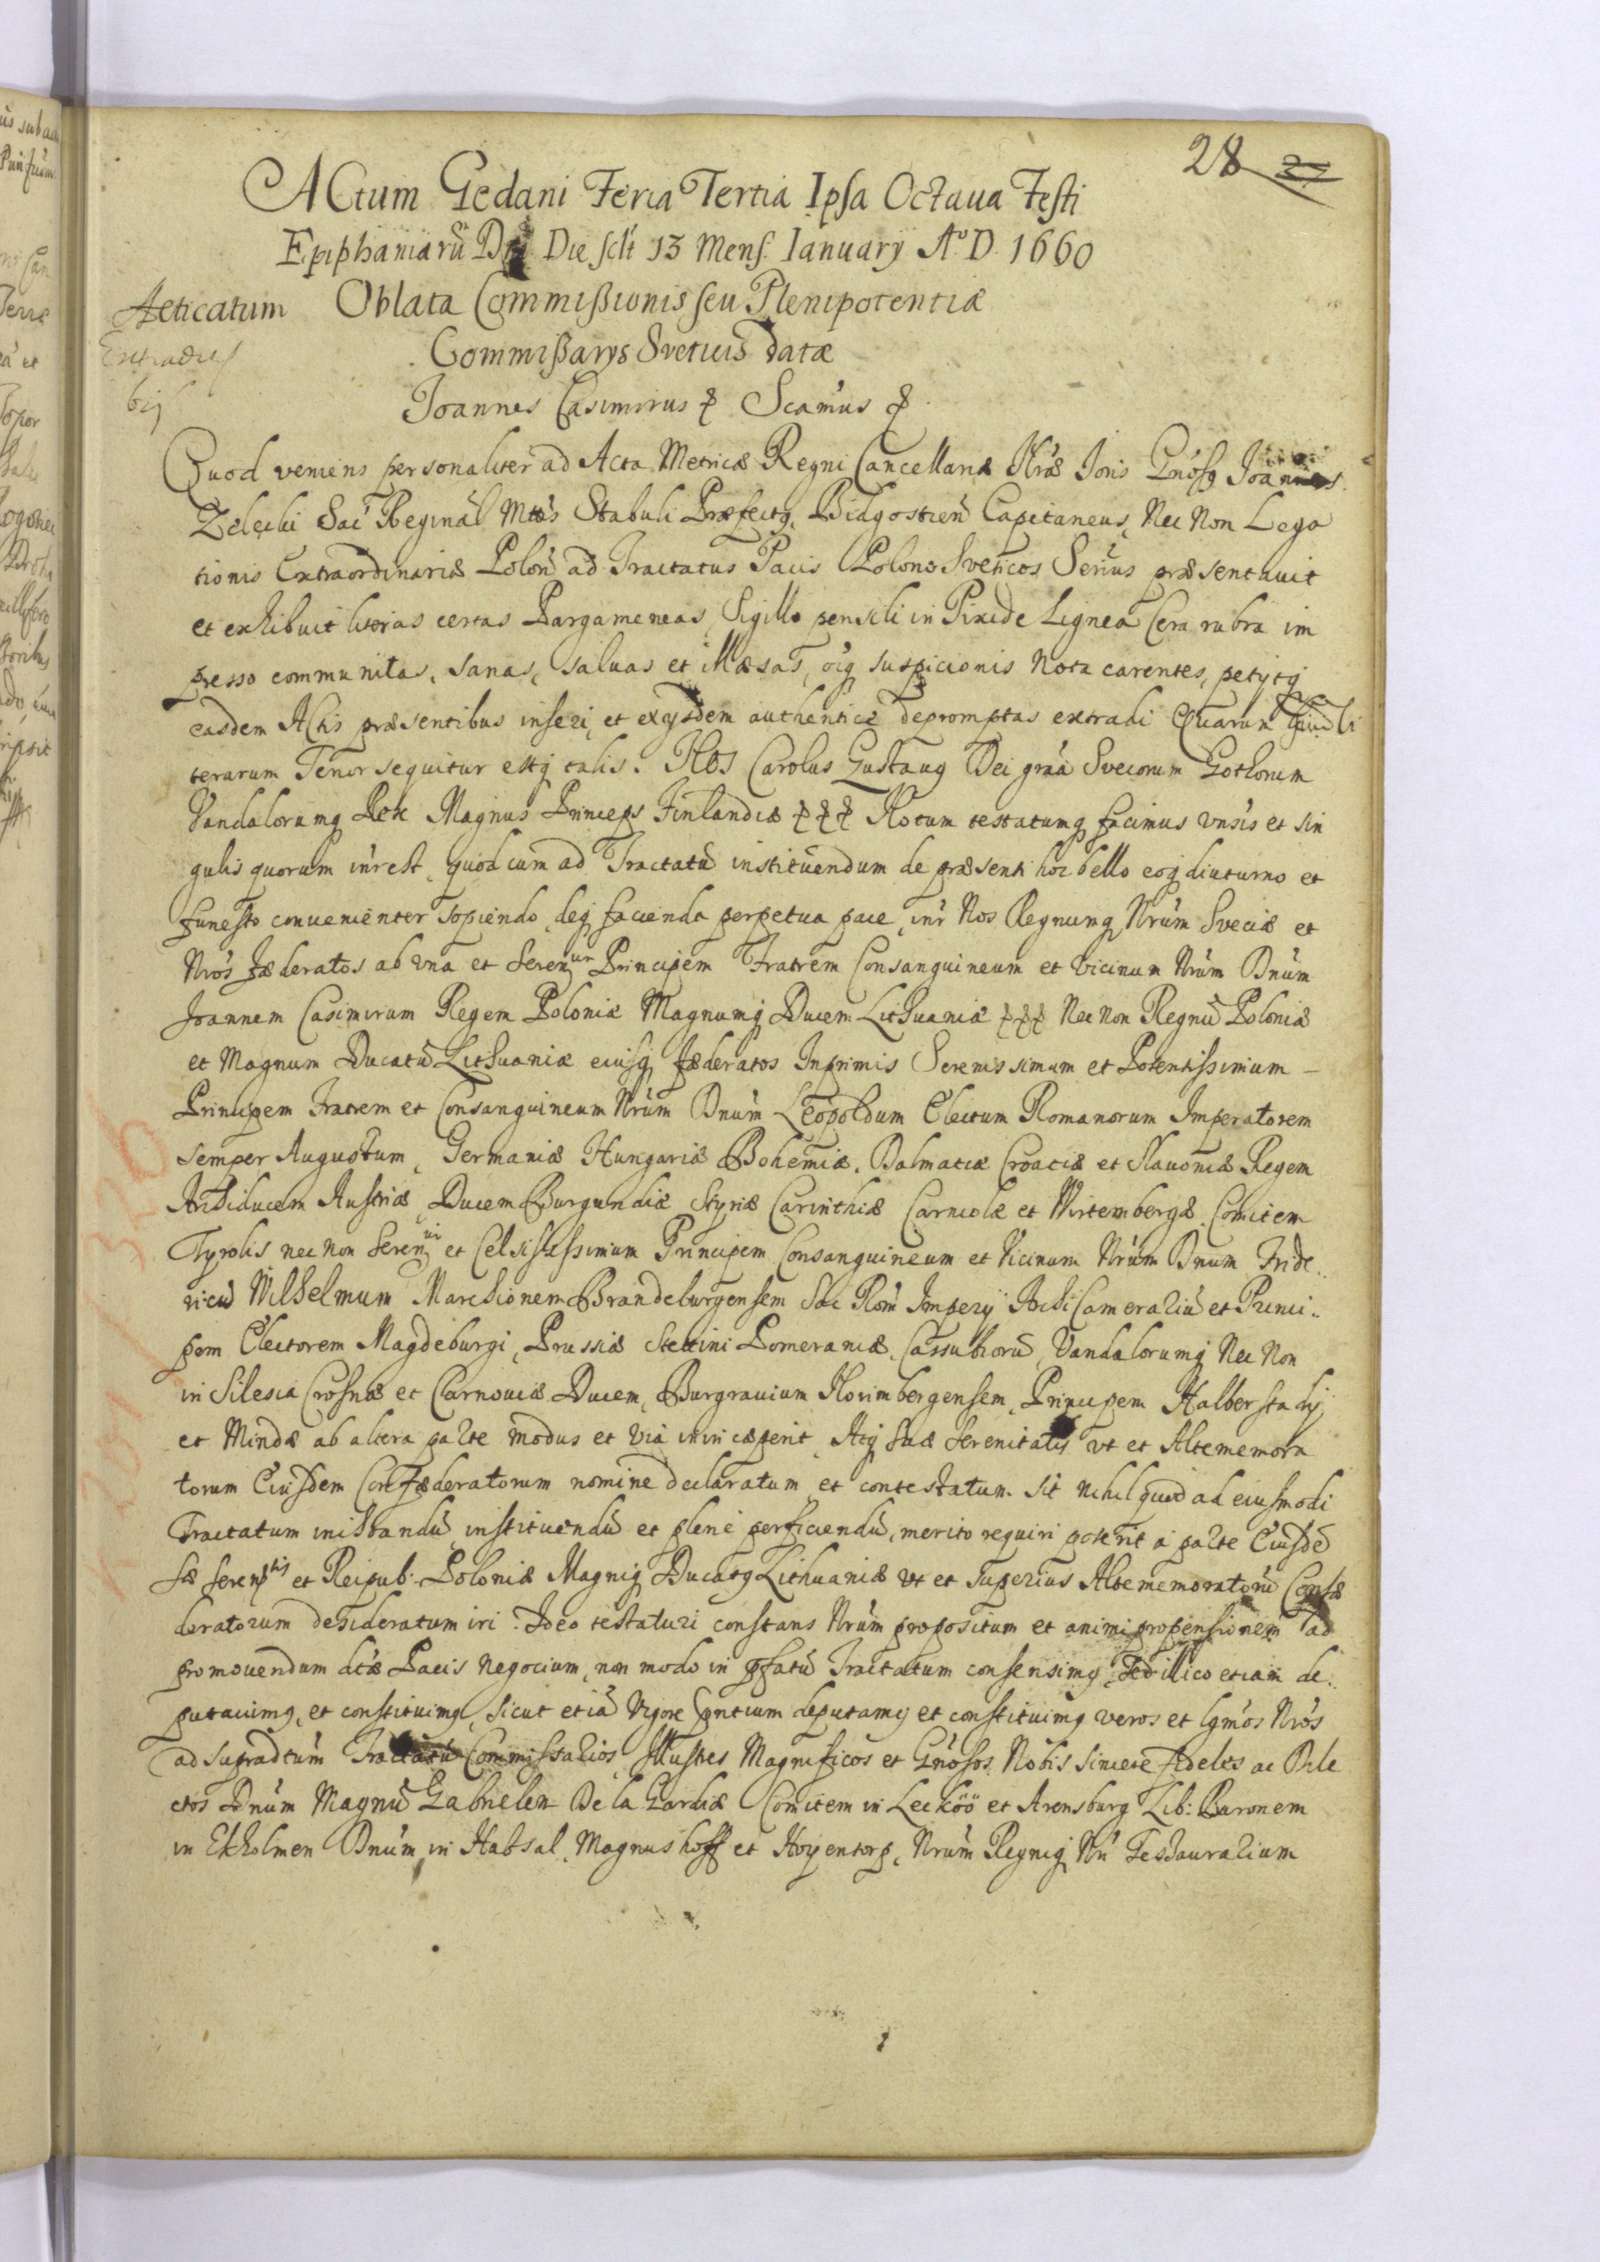 28
ACtum Gedani Feria Tertia Ipsa Octaua Festi
Epiphaniarũ Die sclt 13 Mens. Ianuary Aº D. 1660
Aeticatum Oblata Commißionis seu Plenipotentiæ
Extradit Commißarys Svetuis datæ
bis Joannes Casimirus Scamus
Quod veniens personaliter ad Acta Metricæ Regni Cancellariæ Nræ Ioris Gnosq Joannes
Zelecki Sac Reginal Mttis Stabuli Præfectq, Bidgostien Capitaneus, Nec Non Lega
tionis Extraordinariæ Polon ad Tractatus Pacis Polono Sveticos præsentauit
et exhibuit literas certas Pargameneas, Sigillo pensili in Pixide Lignea Cera rubra im
presso communitas, sanas, saluas et illæsas, oiq suspicionis nota carentes, petytq
easdem Actis præsentibus inseri, et exijsdem authentice depromptas extradi Quarum li
terarum Tenor sequitur estq talis. Nos Carolus Gustauq Dei graa Svecorum Gothorum
Vandalorumq Rex Magnus Princeps Finlandiæ Notum testatumq facimus vnsis et sin
gulis quorum inrest, quod cum ad Tractatũ instituendum de præsenti hoc bello eoq diuturno et
funesto conuenienter sopiendo, deq facienda perpetua pace, inr Nos Regnumq Nrũm Sveciæ et
Nros fæderatos ab vna et Seren Principem Fratrem Consanguineum et vicinum Nrũm Dnũm
Joannem Casimirum Regem Poloniæ Magnumq Ducem Lithuaniæ Nec Non Regnũ Poloniæ
et Magnum Ducatũ Lithuaniæ eiusq fæderatos Inprimis Serenissimum et Potentissimum
Principem Fratrem et Consanguineum Nrũm Dnũm Leopoldum Electum Romanorum Imperatorem
semper Augustum, Germaniæ Hungariæ Bohemiæ, Dalmatiæ Croatiæ et Slauoniæ Regem
Archiducem Austriæ, Ducem Burgundiæ Styriæ Carinthiæ Carniolæ et Wirtembergæ Comitem
Tyrolis nec non Seren et Celsissimum Principem Consanguineum et Vicinum Nrũm Dnum Fride
ricũ Wilhelmum Marchionem Brandeburgensem Sac Rom Impery Archi Camerariũ et Princi
pem Electorem Magdeburgi, Prussiæ Stettini Pomeraniæ, Cassubiorũ, Vandalorumq Nec Non
in Silesia Crosnæ et Carnouiæ Ducem, Burgrauium Norimbergensem, Principem Halberstadij
et Mindæ ab altera parte modus et via iniri cæperit, Atq suæ Serenitatis vt et Altememora
torum Eiusdem Confæderatorum nomine declaratum et contestatum sit nihil quod ad eiusmodi
Tractatum inchoandũ, instituendũ et plenè perficiendũ, merito requiri poterit à parte Eiusdē
Sæ Seren et Reipub: Poloniæ Magniq Ducatq Lithuaniæ vt et superius Altememoratorũ Confæ
deratorum desideratum iri. Ideo testaturi constans Nrũm propositum et animi propensionem ad
promouendum dctæ Pacis negocium, non modo in pfatũ Tractatum consensimq, Sed illico etiam de
putauimq, et constituimq, sicut etiã Vigore pntium deputamq et constituimq veros et lgmos Nros
ad supradtum Tractatũ Commissarios, Illustres Magnificos et Gnosos Nobis sincere fideles ac Dile
ctos Dnũm Magnũ Gabrielem De la Gardiæ Comitem in Leckoö et Arensburg Lib: Baronem
in Ekholmen Dnũm in Habsal, Magnushoff et Hoyentorp, Nrũm Regniq Nri Tesaurarium